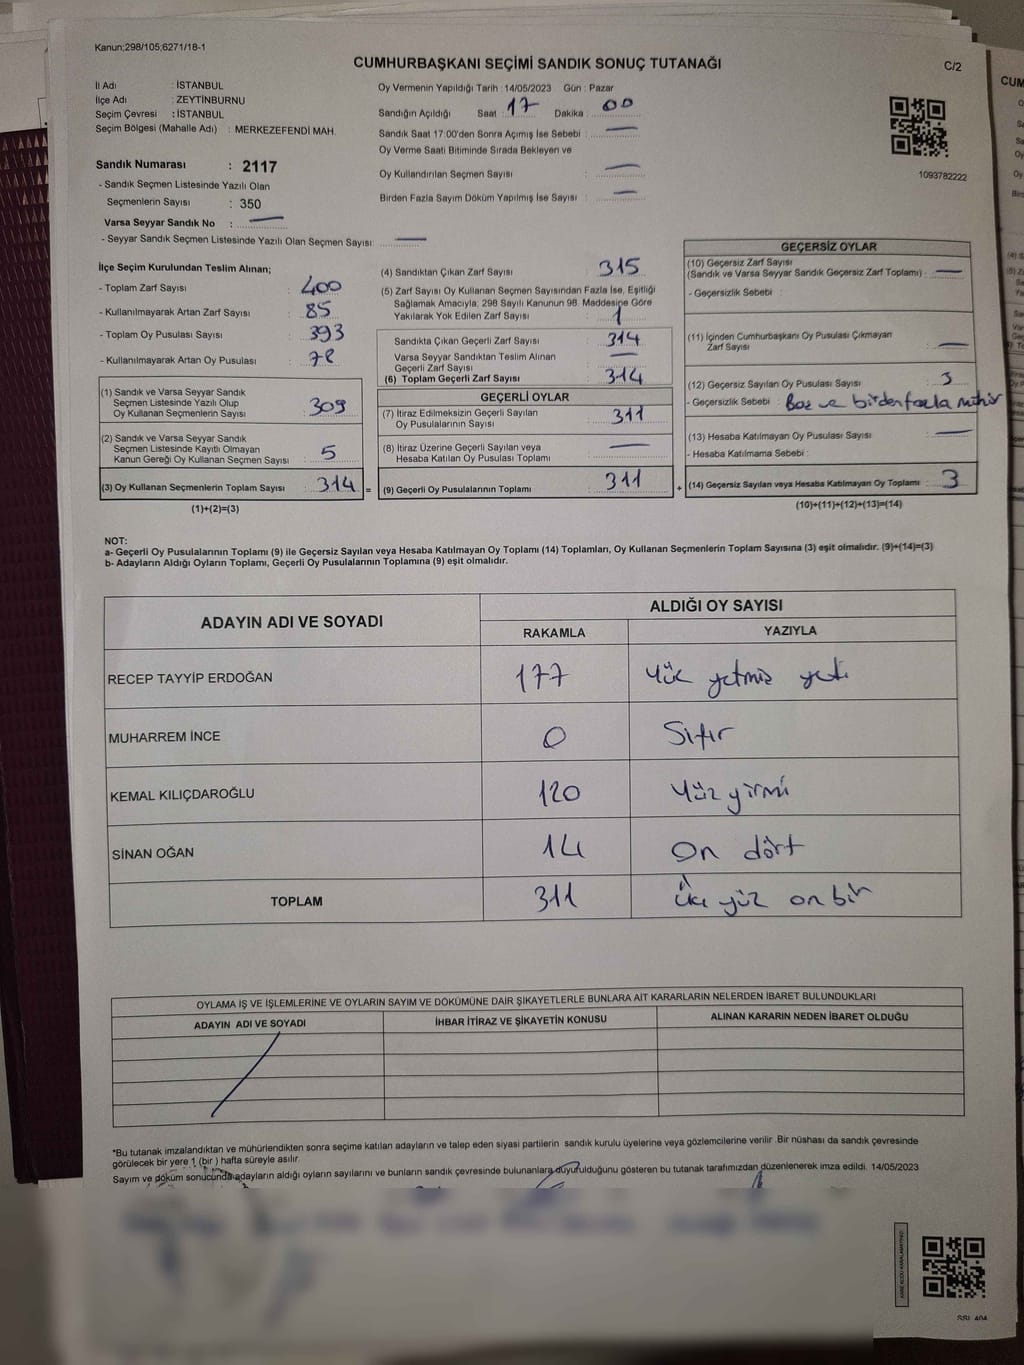 Kanun;298/105;6271/18-1
CUMHURBAŞKANI SEÇİMİ SANDIK SONUÇ TUTANAĞI
C/2
İl Adı : İSTANBUL
İlçe Adı : ZEYTİNBURNU
Seçim Çevresi : İSTANBUL
Seçim Bölgesi (Mahalle Adı) : MERKEZEFENDİ MAH.
Sandık Numarası : 2117
- Sandık Seçmen Listesinde Yazılı Olan
Seçmenlerin Sayısı : 350
Varsa Seyyar Sandık No : —
- Seyyar Sandık Seçmen Listesinde Yazılı Olan Seçmen Sayısı: —
Oy Vermenin Yapıldığı Tarih : 14/05/2023 Gün : Pazar
Sandığın Açıldığı Saat 17 Dakika 00
Sandık Saat 17:00'den Sonra Açımış İse Sebebi : —
Oy Verme Saati Bitiminde Sırada Bekleyen ve
Oy Kullandırılan Seçmen Sayısı : —
Birden Fazla Sayım Döküm Yapılmış İse Sayısı : —
1093782222
İlçe Seçim Kurulundan Teslim Alınan;
- Toplam Zarf Sayısı : 400
- Kullanılmayarak Artan Zarf Sayısı : 85
- Toplam Oy Pusulası Sayısı : 393
- Kullanılmayarak Artan Oy Pusulası : 78
(1) Sandık ve Varsa Seyyar Sandık
Seçmen Listesinde Yazılı Olup
Oy Kullanan Seçmenlerin Sayısı : 309
(2) Sandık ve Varsa Seyyar Sandık
Seçmen Listesinde Kayıtlı Olmayan
Kanun Gereği Oy Kullanan Seçmen Sayısı : 5
(3) Oy Kullanan Seçmenlerin Toplam Sayısı : 314 =
(1)+(2)=(3)
(4) Sandıktan Çıkan Zarf Sayısı : 315
(5) Zarf Sayısı Oy Kullanan Seçmen Sayısından Fazla İse, Eşitliği
Sağlamak Amacıyla; 298 Sayılı Kanunun 98. Maddesine Göre
Yakılarak Yok Edilen Zarf Sayısı : 1
Sandıkta Çıkan Geçerli Zarf Sayısı : 314
Varsa Seyyar Sandıktan Teslim Alınan
Geçerli Zarf Sayısı : —
(6) Toplam Geçerli Zarf Sayısı : 314
GEÇERLİ OYLAR
(7) İtiraz Edilmeksizin Geçerli Sayılan
Oy Pusulalarının Sayısı : 311
(8) İtiraz Üzerine Geçerli Sayılan veya
Hesaba Katılan Oy Pusulası Toplamı : —
(9) Geçerli Oy Pusulalarının Toplamı : 311 +
GEÇERSİZ OYLAR
(10) Geçersiz Zarf Sayısı
(Sandık ve Varsa Seyyar Sandık Geçersiz Zarf Toplamı) : —
- Geçersizlik Sebebi :
(11) İçinden Cumhurbaşkanı Oy Pusulası Çıkmayan
Zarf Sayısı : —
(12) Geçersiz Sayılan Oy Pusulası Sayısı : 3
- Geçersizlik Sebebi : Boz ve birden fazla mühür
(13) Hesaba Katılmayan Oy Pusulası Sayısı : —
- Hesaba Katılmama Sebebi :
(14) Geçersiz Sayılan veya Hesaba Katılmayan Oy Toplamı : 3
(10)+(11)+(12)+(13)=(14)
NOT:
a- Geçerli Oy Pusulalarının Toplamı (9) ile Geçersiz Sayılan veya Hesaba Katılmayan Oy Toplamı (14) Toplamları, Oy Kullanan Seçmenlerin Toplam Sayısına (3) eşit olmalıdır. (9)+(14)=(3)
b- Adayların Aldığı Oyların Toplamı, Geçerli Oy Pusulalarının Toplamına (9) eşit olmalıdır.
ADAYIN ADI VE SOYADI
ALDIĞI OY SAYISI
RAKAMLA YAZIYLA
RECEP TAYYİP ERDOĞAN 177 Yüz yetmiş yedi
MUHARREM İNCE 0 Sıfır
KEMAL KILIÇDAROĞLU 120 Yüz yirmi
SİNAN OĞAN 14 On dört
TOPLAM 311 üç yüz on bir
OYLAMA İŞ VE İŞLEMLERİNE VE OYLARIN SAYIM VE DÖKÜMÜNE DAİR ŞİKAYETLERLE BUNLARA AİT KARARLARIN NELERDEN İBARET BULUNDUKLARI
ADAYIN ADI VE SOYADI İHBAR İTİRAZ VE ŞİKAYETİN KONUSU ALINAN KARARIN NEDEN İBARET OLDUĞU
*Bu tutanak imzalandıktan ve mühürlendikten sonra seçime katılan adayların ve talep eden siyasi partilerin sandık kurulu üyelerine veya gözlemcilerine verilir .Bir nüshası da sandık çevresinde
görülecek bir yere 1 (bir ) hafta süreyle asılır.
Sayım ve döküm sonucunda adayların aldığı oyların sayılarını ve bunların sandık çevresinde bulunanlara duyurulduğunu gösteren bu tutanak tarafımızdan düzenlenerek imza edildi. 14/05/2023